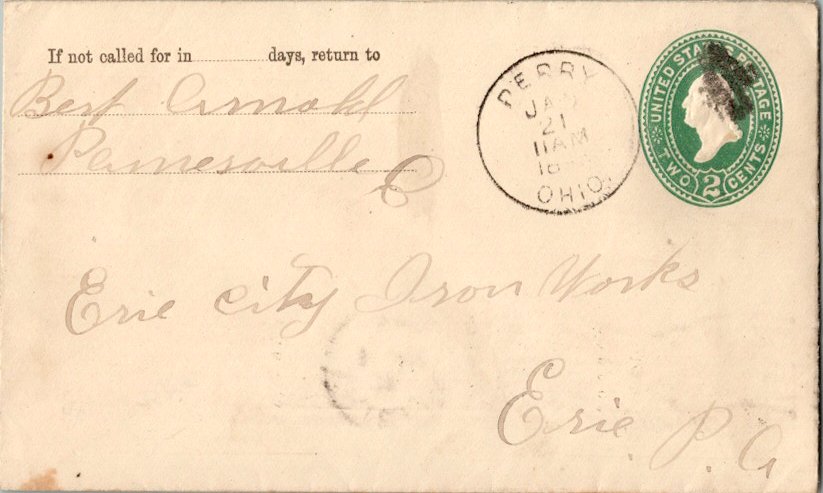 If not called for in ............ days, return to
Bert Arnold
Painesville O
PERRY
JAN
21
11AM
18
OHIO.
UNITED STATES POSTAGE
TWO 2 CENTS
Erie City Iron Works
Erie P.a